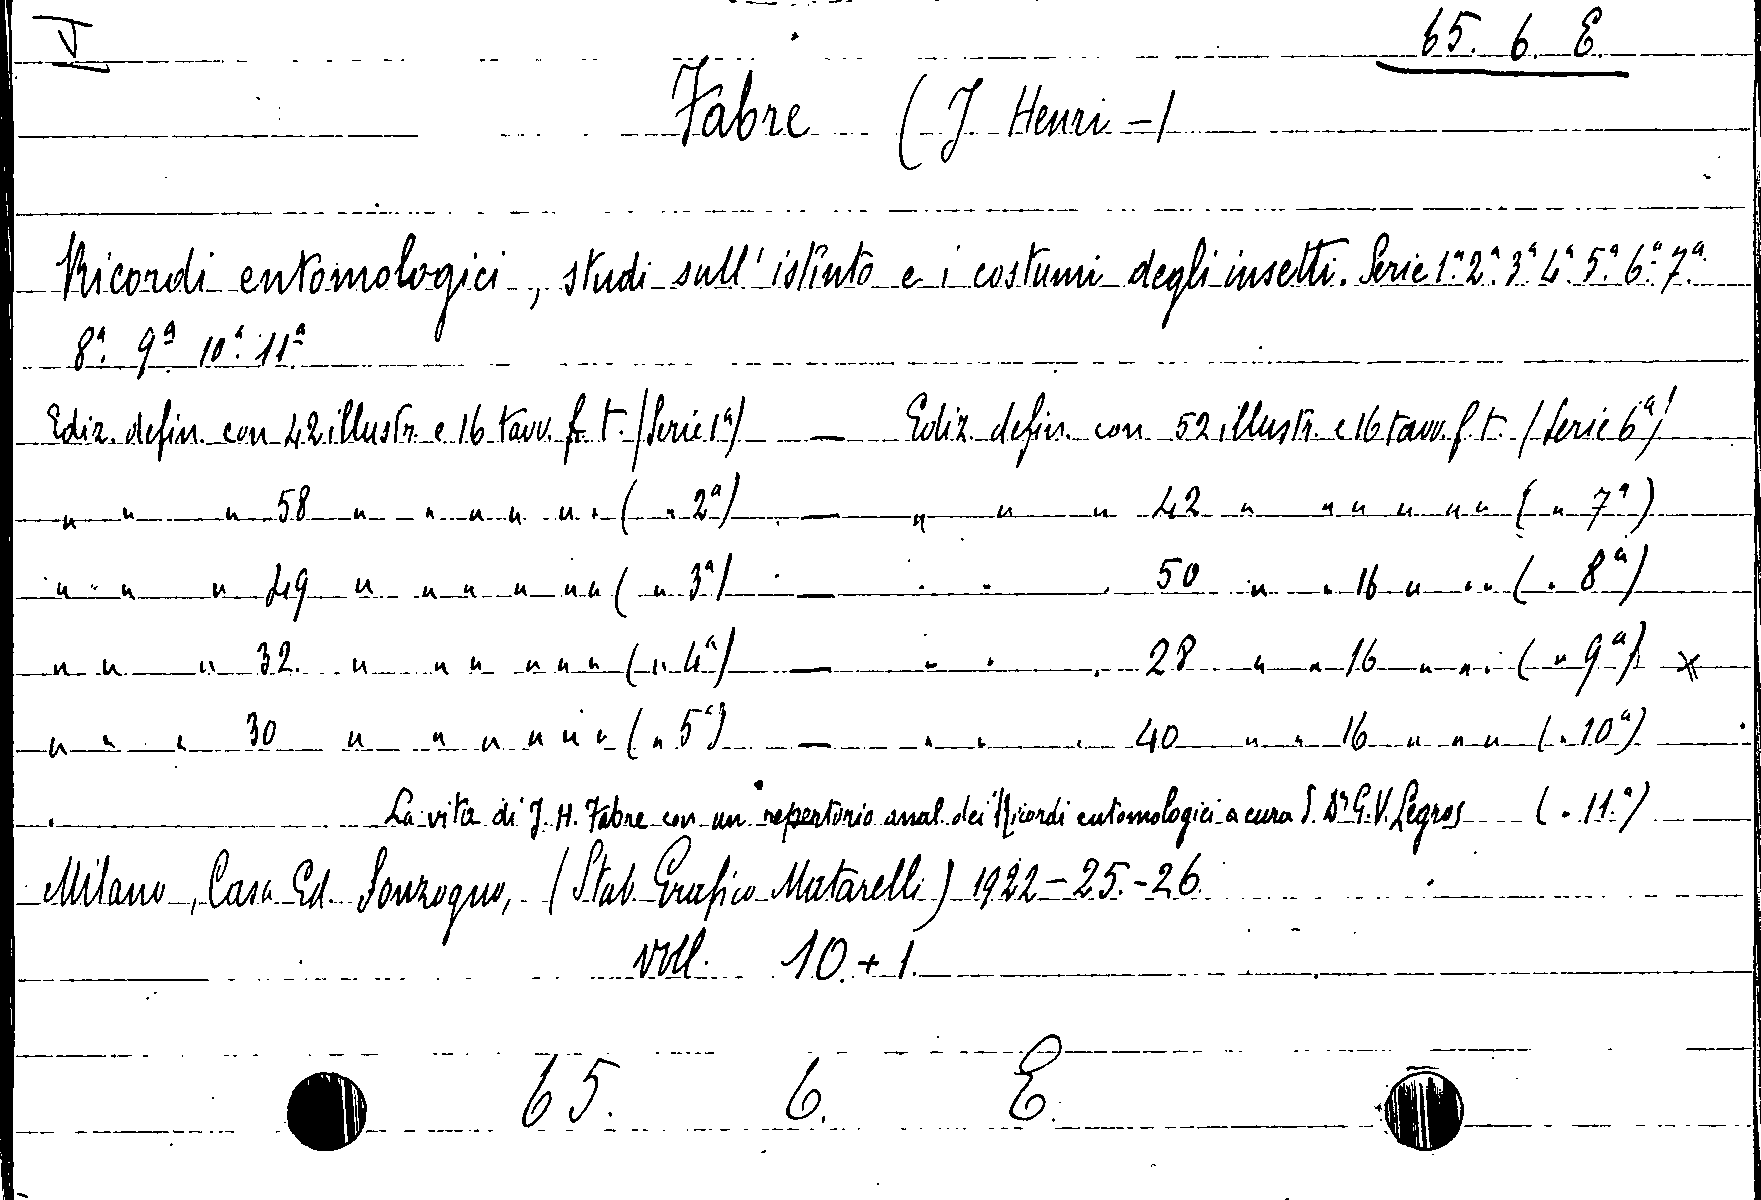 I
65. 6. E.
Fabre ( J Henri - )
Ricordi entomologici, studi sull' istinto e i costumi degli insetti. Serie 1ª. 2ª. 3ª 4ª. 5ª. 6ª. 7ª.
8ª. 9ª 10ª. 11ª
Ediz. defin. con 42 illustr. e 16 tavv. f. t. (Serie 1ª) — Ediz. defin. con 52 illustr. e 16 tavv. f. t. (Serie 6ª)
" " " 58 " " " " " " ( " 2ª) — " " " 42 " " " " " " ( " 7ª)
" " " 49 " " " " " " ( " 3ª) — " " " 50 " " 16 " " " ( " 8ª)
" " " 32. " " " " " " ( " 4ª) — " " " 28 " " 16 " " " ( " 9ª) x
" " " 30 " " " " " " ( " 5ª) — " " " 40 " " 16 " " " ( " 10ª)
La vita di J. H. Fabre con un repertorio anal. dei Ricordi entomologici a cura d. Dr G. V. Legros ( " 11ª)
Milano, Casa Ed. Sonzogno, (Stab. Grafico Matarelli) 1922-25.-26.
voll. 10.+1.
65. 6. E.